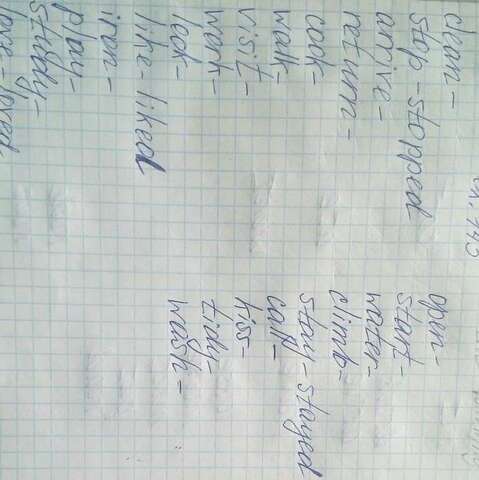 clean-
stop-stopped
arrive-
return-
cook-
walk-
visit-
work-
like-liked
iron-
play-
study-
love-loved
open-
start-
water-
climb-
stay-stayed
call-
kiss-
tidy-
wash-